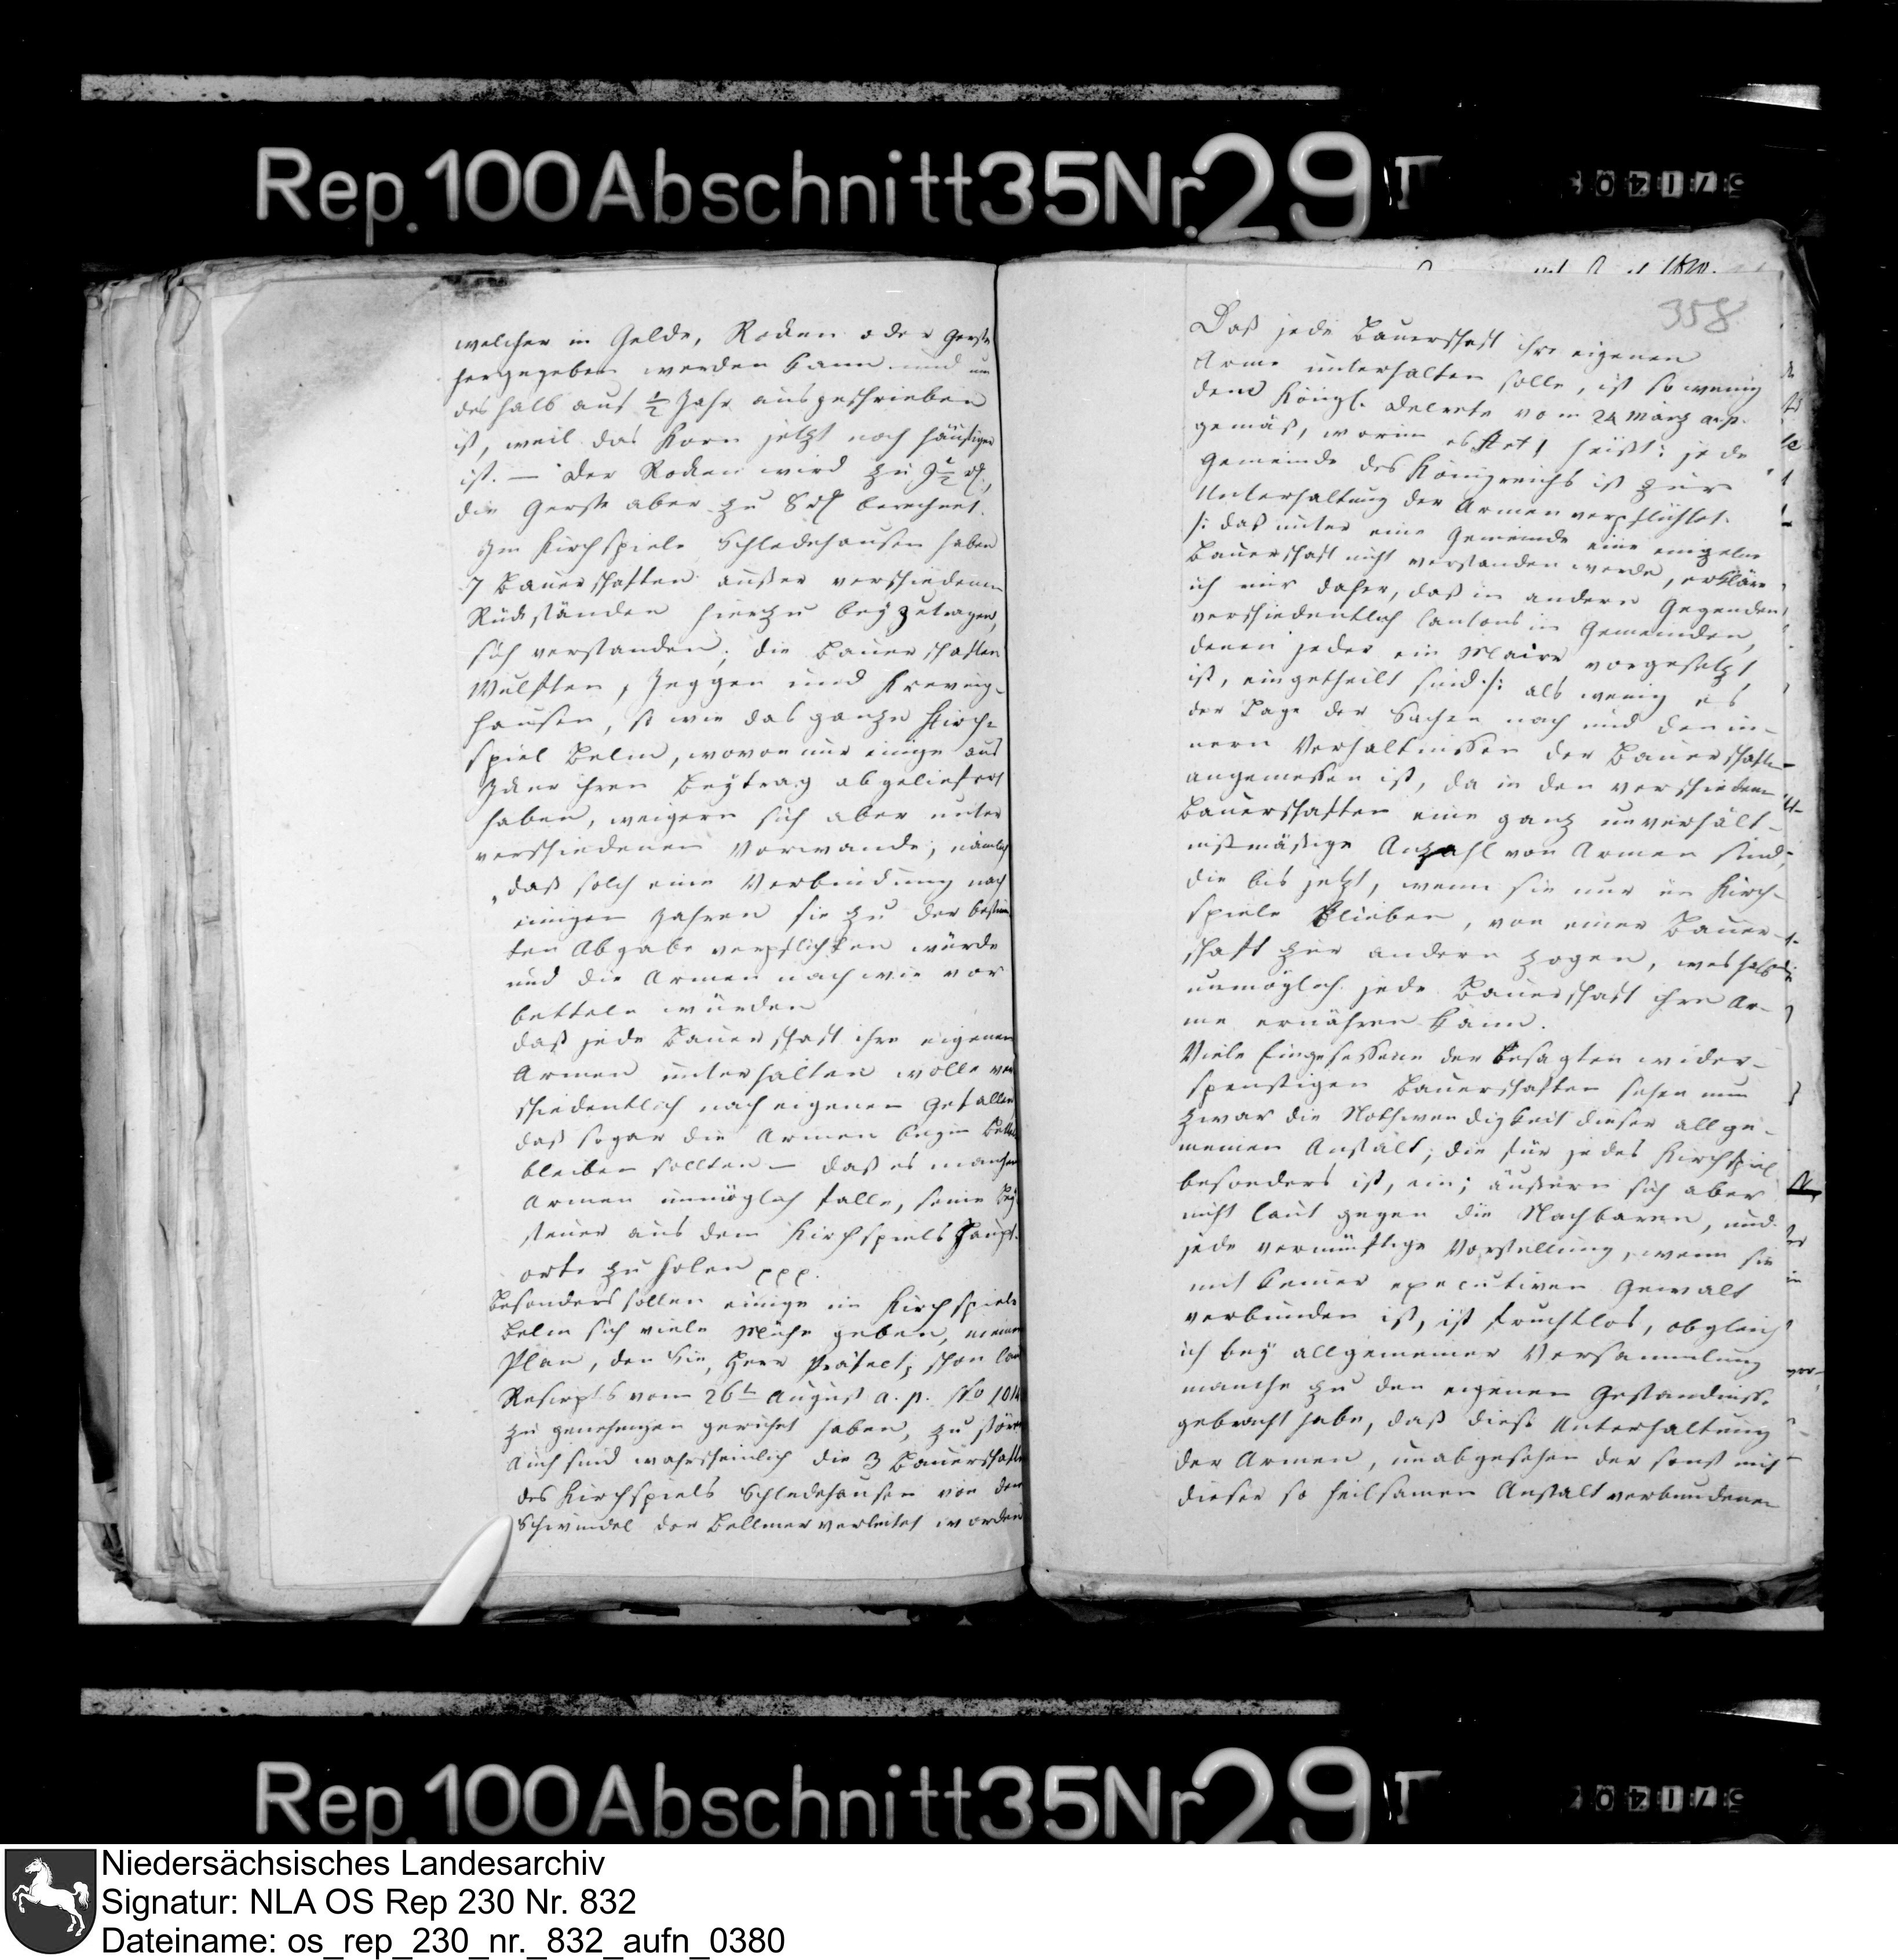 Rep. 100 Abschnitt 35 Nr. 29 I
welcher in Gelde, Rocken oder Gerste
hergegeben werden kann und nur
deshalb auf ½ Jahr ausgeschrieben
ist, weil das Korn jetzt noch häufiger
ist. — Der Rocken wird zu 9½ rℓ,
die Gerste aber zu 8 rℓ berechnet.
Im Kirchspiele Schledehausen haben
7 Bauerschaften außer verschiedenen
Rückständen hierzu beyzutragen,
sich verstanden; die Bauerschaften
Wulften, Jeggen und Kreving-
hausen, so wie das ganze Kirch-
spiel Belm, wovon nur einige aus
Icker ihren Beytrag abgeliefert
haben, weigern sich aber unter
verschiedenen Vorwande, nämlich
„daß solch eine Verbindung nach
einigen Jahren sie zu der bestim
ten Abgabe verpflichten würde
und die Armen nach wie vor
betteln würden
daß jede Bauerschaft ihre eigenen
Armen unterhalten wolle ver
schiedentlich nach eigenen Gefallen
daß sogar die Armen beym Betteln
bleiben sollten — daß es manchen
Armen unmöglich falle, seine Bey
steuer aus dem Kirchspiels Haupt-
orte zu holen ppp.
Besonders sollen einige im Kirchspiele
Belm sich viele Mühe geben, meinen
Plan, den Sie, Herr Präfect, schon laut
Rescripts vom 26t August a. p. No 1014
zu genehmigen geruhet haben, zu stören
Auch sind wahrscheinlich die 3 Bauerschaften
des Kirchspiels Schledehausen von dem
Schwindel der Bellmer verleitet worden
1810.
358.
Daß jede Bauerschaft ihre eigenen
Arme unterhalten solle, ist so wenig
dem Königl. Decrete vom 24 März a. p.
gemäß, worin es Art 1 heißt: jede
Gemeinde des Königreichs ist zur
Unterhaltung der Armen verpflichtet.
/: daß unter eine Gemeinde eine einzelne
Bauerschaft nicht verstanden werde, erkläre
ich mir daher, daß in andern Gegenden
verschiedentlich Cantons in Gemeinden,
denen jeder ein Maire vorgesetzt
ist, eingetheilt sind :/ als wenig es
der Lage der Sachen nach und den in-
nern Verhältnissen der Bauerschaften
angemessen ist, da in den verschiedenen
Bauerschaften eine ganz unverhält-
nißmäßige Anzahl von Armen sind,
die bis jetzt, wenn sie nur im Kirch-
spiele blieben, von einer Bauer-
schaft zur andern zogen, weshalb
unmöglich jede Bauerschaft ihre Ar-
me ernähren kann.
Viele Eingesessene der besagten wider-
spenstigen Bauerschaften sehen nun
zwar die Nothwendigkeit dieser allge-
meinen Anstalt; die für jedes Kirchspiel
besonders ist, ein; äußern sich aber
nicht laut gegen die Nachbaren, und
jede vernünftige Vorstellung, wenn sie
mit keiner executiven Gewalt
verbunden ist, ist fruchtlos, obgleich
ich bey allgemeiner Versammlung
manche zu den eigenen Geständnisse
gebracht habe, daß diese Unterhaltung
der Armen, unabgesehen der sonst mit
dieser so heilsamen Anstalt verbundenen
Rep. 100 Abschnitt 35 Nr. 29 I
Niedersächsisches Landesarchiv
Signatur: NLA OS Rep 230 Nr. 832
Dateiname: os_rep_230_nr._832_aufn_0380